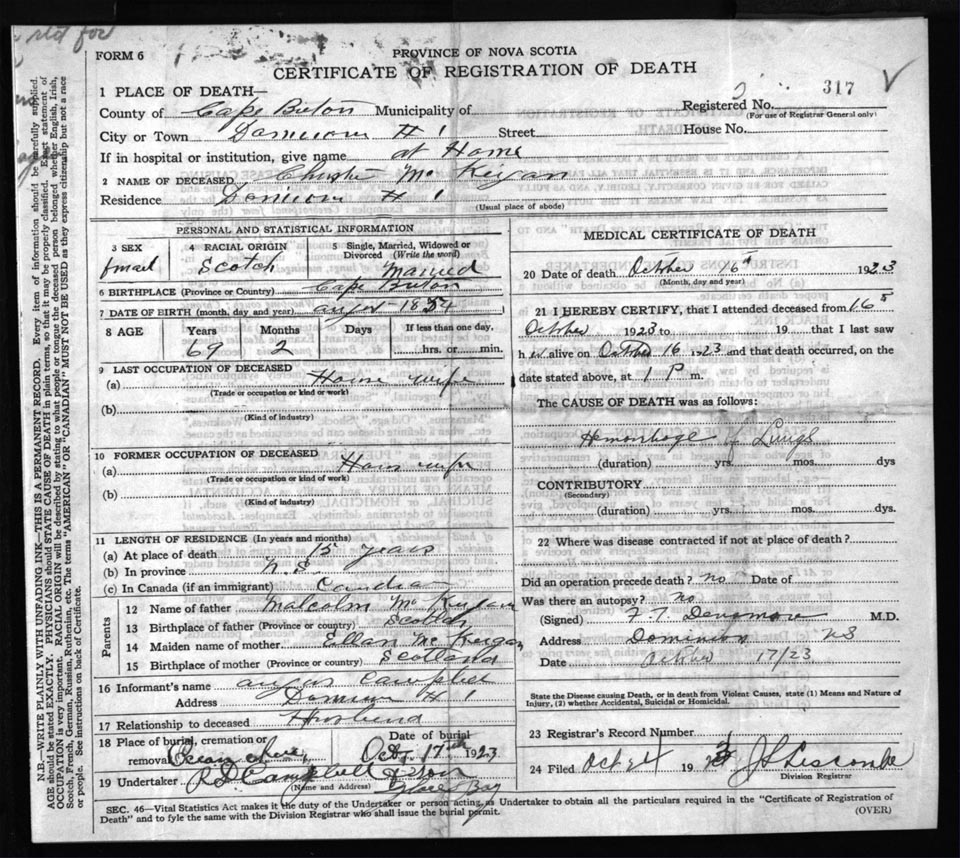 rld for
FORM 6
PROVINCE OF NOVA SCOTIA
CERTIFICATE OF REGISTRATION OF DEATH
317
1 PLACE OF DEATH—
Registered No.
(For use of Registrar General only)
County of Cape Breton Municipality of
City or Town Dominion # 1 Street House No.
If in hospital or institution, give name at Home
2 NAME OF DECEASED Christie McKeigan
Residence Dominion # 1
(Usual place of abode)
PERSONAL AND STATISTICAL INFORMATION
3 SEX 4 RACIAL ORIGIN 5 Single, Married, Widowed or Divorced (Write the word)
Scotch Married
6 BIRTHPLACE (Province or Country) Cape Breton
7 DATE OF BIRTH (month, day and year) 1854
8 AGE Years Months Days If less than one day,
69 2 hrs. or min.
9 LAST OCCUPATION OF DECEASED
(a) House wife
(Trade or occupation or kind or work)
(b)
(Kind of industry)
10 FORMER OCCUPATION OF DECEASED
(a) Hous wife
(Trade or occupation or kind of work)
(b)
(Kind of industry)
11 LENGTH OF RESIDENCE (In years and months)
(a) At place of death 15 years
(b) In province N.S.
(c) In Canada (if an immigrant)
Parents
12 Name of father Malcolm McKeigan
13 Birthplace of father (Province or country) Scotch
14 Maiden name of mother Ellan McKeigan
15 Birthplace of mother (Province or country) Scotland
16 Informant's name angus Campbell
Address Dominion # 1
17 Relationship to deceased Husbend
18 Place of burial, cremation or removal Date of burial
Oct. 17th 1923
19 Undertaker Campbell & Son
(Name and Address) Glace Bay
MEDICAL CERTIFICATE OF DEATH
20 Date of death October 16th 1923
(Month, day and year)
21 I HEREBY CERTIFY, that I attended deceased from 16th
October 1923 to 19 that I last saw
h er alive on October 16 1923 and that death occurred, on the
date stated above, at 1 P m.
The CAUSE OF DEATH was as follows:
Hemorrhage of Lungs
(duration) yrs. mos. dys
CONTRIBUTORY
(Secondary)
(duration) yrs. mos. dys.
22 Where was disease contracted if not at place of death?
Did an operation precede death? no Date of
Was there an autopsy? No
(Signed) M.D.
Address Dominion NS
Date October 17/23
State the Disease causing Death, or in death from Violent Causes, state (1) Means and Nature of
Injury, (2) whether Accidental, Suicidal or Homicidal.
23 Registrar's Record Number
24 Filed Oct 24 1923 Liscombe
Division Registrar
SEC. 46—Vital Statistics Act makes it the duty of the Undertaker or person acting as Undertaker to obtain all the particulars required in the "Certificate of Registration of
Death" and to fyle the same with the Division Registrar who shall issue the burial permit.
(OVER)
N.B.—WRITE PLAINLY WITH UNFADING INK—THIS IS A PERMANENT RECORD. Every item of information should be carefully supplied.
AGE should be stated EXACTLY. PHYSICIANS should STATE CAUSE OF DEATH in plain terms, so that it may be properly classified. Exact statement of
OCCUPATION is very important. RACIAL ORIGIN will be described by stating to what people or tongue the deceased person belonged whether English, Irish,
Scotch, French, German, Russian, Ruthenian, etc. The terms "AMERICAN" OR "CANADIAN" MUST NOT BE USED as they express citizenship but not a race
or people. See instructions on back of Certificate.